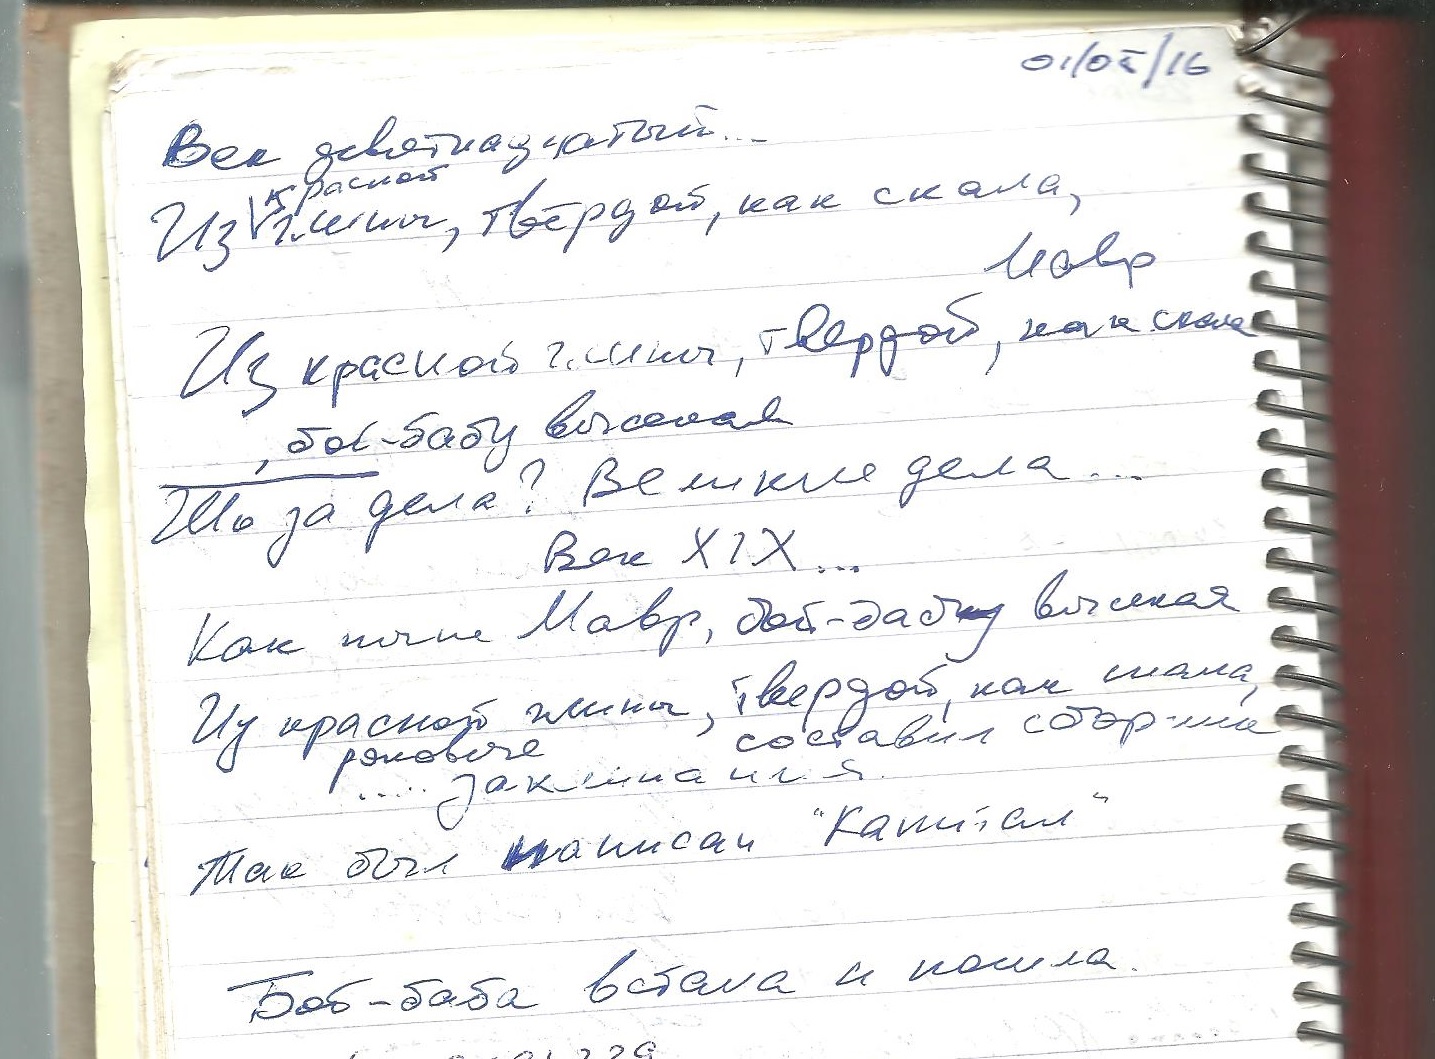 01/05/16
Век девятнадцатый...
красной
Из глины, твёрдой, как скала,
Мавр
Из красной глины, твердой, как скала
, бой-бабу высекая
Шо за дела? Великие дела...
Век XIX...
Как ныне Мавр, бой-бабу высекая
Из красной глины, твердой, как скала,
роковые составил сборник
..... заклинания.
Так был написан "Капитал"
Бой-баба встала и пошла.